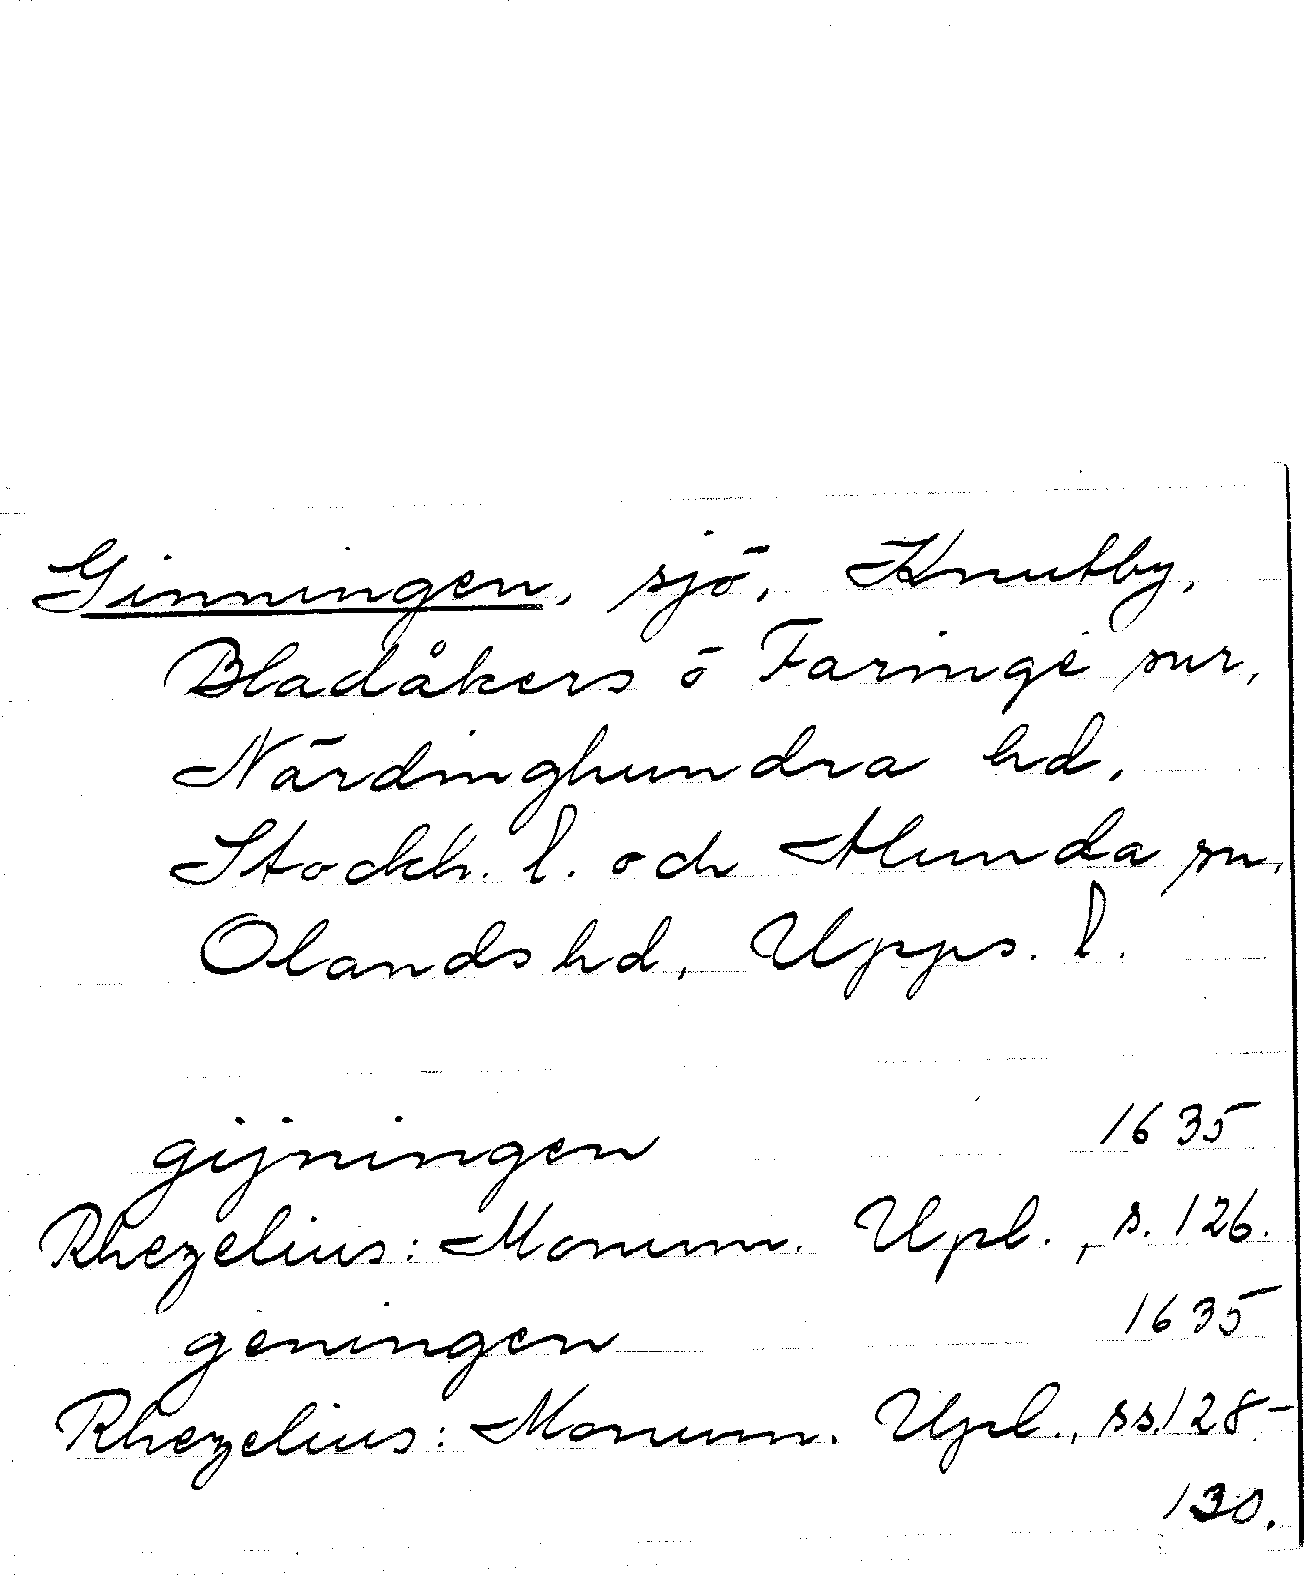 Ginningen, sjö, Knutby,
Bladåkers o Faringe snr,
Närdinghundra hd,
Stockh. l. och Alunda sn,
Olands hd, Upps. l.
gijningen 1635
Rhezelius: Monum. Upl., s. 126.
geningen 1635
Rhezelius: Monum. Upl., ss. 128-
130.